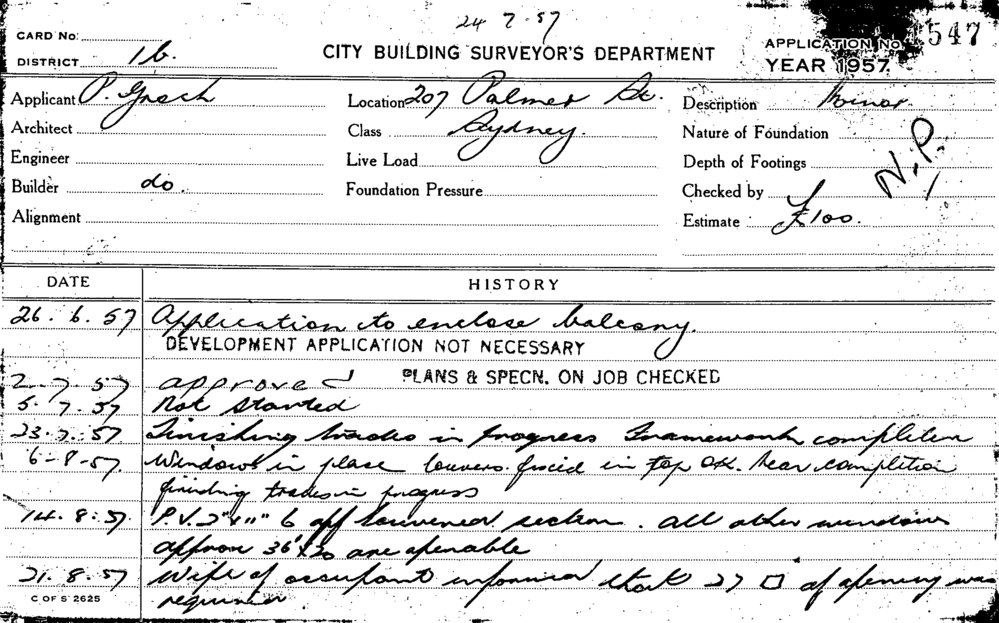 24 7-57
CARD No.
DISTRICT 1b.
CITY BUILDING SURVEYOR'S DEPARTMENT
APPLICATION No 547
YEAR 1957
Applicant P. Location 207 Palmer St. Description Minor.
Architect Class Sydney. Nature of Foundation N.P.
Engineer Live Load Depth of Footings
Builder do. Foundation Pressure Checked by
Alignment Estimate £100.
DATE HISTORY
26.6.57 Application to enclose balcony.
DEVELOPMENT APPLICATION NOT NECESSARY
2-7-57 approved PLANS & SPECN. ON JOB CHECKED
5.7.57 Not started
23.7.57 Finishing trades in progress Framework completed
6-8-57 Windows in place louvers fixed in top OK. Near completion
finishing trades in progress
14.8.57 P.V. 6 off louvered section. All other windows
approx 36" x 30 are openable
21.8.57 Wife of occupant informed that 27 □ of opening was
required
C OF S 2625